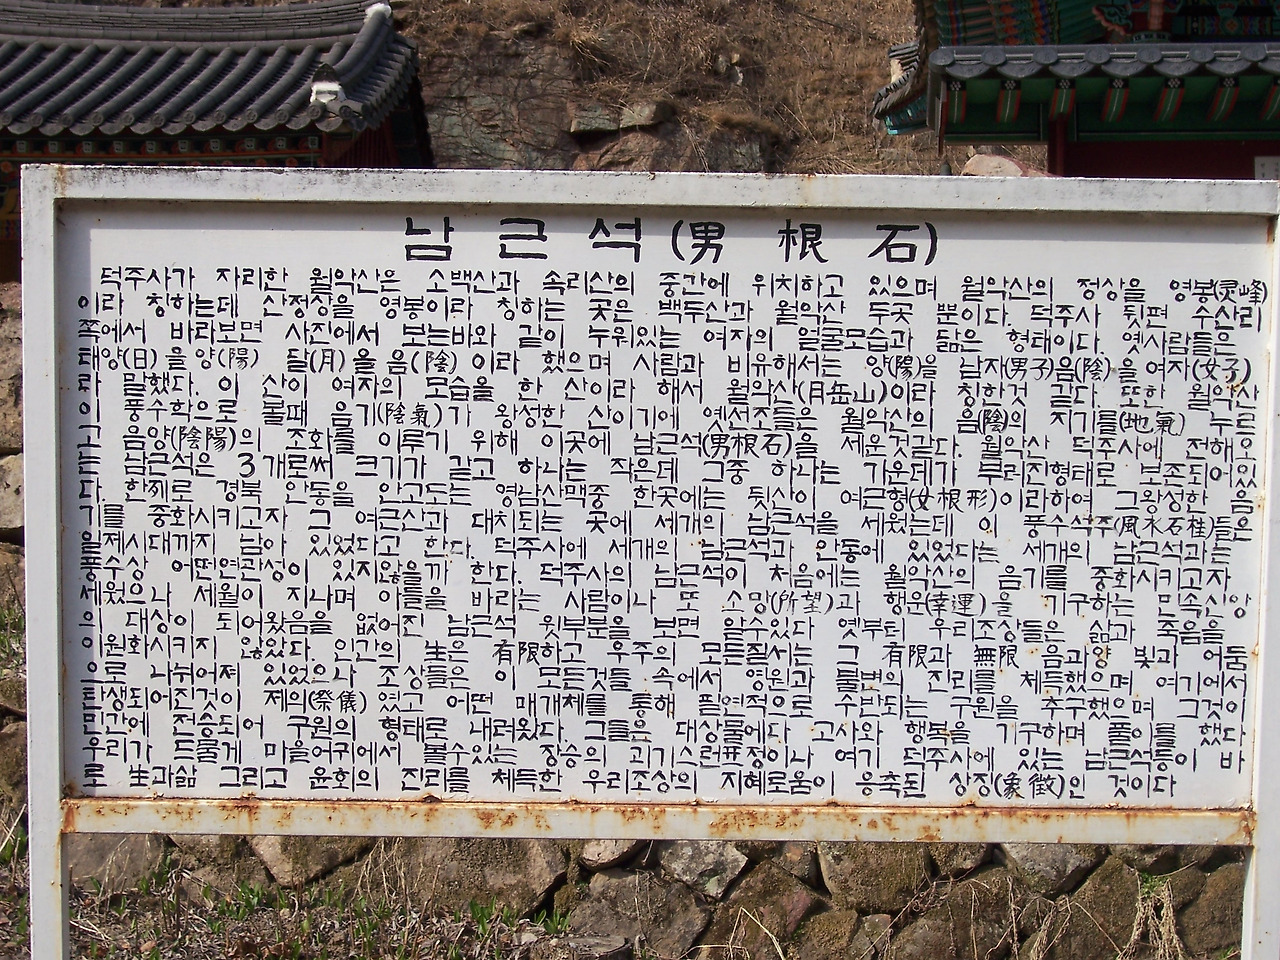 남근석(男根石)
덕주사가 자리한 월악산은 소백산과 속리산의 중간에 위치하고 있으며 월악산의 정상을 영봉(灵峰)
이라 칭하는데 산정상을 영봉이라 칭하는 곳은 백두산과 월악산 두곳 뿐이다. 덕주사 뒷편 수산리
쪽에서 바라보면 사진에서 보는바와 같이 누워있는 여자의 얼굴모습과 닮은 형태이다. 옛사람들은
태양(日)을 양(陽) 달(月)을 음(陰)이라 했으며 사람과 비유해서는 양(陽)을 남자(男子)음(陰)을 여자(女子)
라 말했다. 이 산이 여자의 모습을 한 산이라 해서 월악산(月岳山)이라 칭한것 같다. 또한 월악산
이 풍수학으로 볼때 음기(陰氣)가 왕성한 산이기에 옛선조들은 월악산의 음(陰)의 지기를(地氣) 누르
고 음양(陰陽)의 조화를 이루기 위해 이곳에 남근석(男根石)을 세운것같다. 월악산 덕주사에 전해오
는 남근석은 3개로써 크기가 같고 하나는 작은데 그중 하나는 가운데가 부러진형태로 보존되어있
다. 한예로 경북 안동을 안고도는 영남산맥중 한곳에는 뒷산이 여근형(女根形)이라하여 그왕성한 음
기를 중화시키고자 그 여근산과 대치되는 곳에 세개의 남근석을 세웠는데 이 풍수석주(風水石柱)들은
일제시대까지 남아 있었다고 한다. 덕주사에 세개의 남근석과 안동에 있었다는 세개의 남근석과는
풍수상 어떤연관성이 있지않을까 한다. 덕주사의 남근석이 처음에는 월악산의 음기를 중화시키고자
세웠으나 세월이 지나며 아들을 바라는 사람이나 또 소망(所望)과 행운(幸運)을 기구하는 민속신앙
의 대상이 되어왔음을 없어진 남근석 윗부분을 보면 알수있다 옛부터 우리조상들은 삶과 죽음을
이원화시키지 않았다. 인간의 生은 有限하고 우주의 모든질서는 그 有限과 無限 음과양 빛과 어둠
으로 나뉘어져 있었으나 조상들은 이 모든것들 속에서 영원과 불변의 진리를 체득했으며 여기에서
탄생되어진것이 제의(祭儀) 였고 어떤 매개체를 통해 필연적으로 수반되는 구원을 추구했으며 그것이
민간에 전승되어 구원의 형태로 내려왔다. 그들은 대상물에다 고사와 행복을 기구하며 풀이를 했다
우리가 드물게 마을어귀에서 볼수있는 장승의 괴기스런표정이나 여기 덕주사에 있는 남근석등이 바
로 生과삶 그리고 윤회의 진리를 체득한 우리조상의 지혜로움이 응축된 상징(象徵)인 것이다